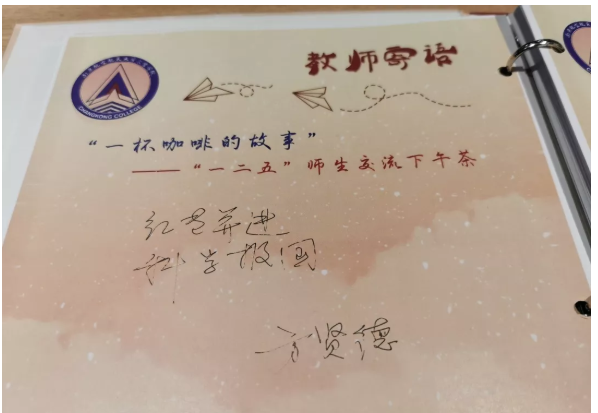 教师寄语
CHANGKONG COLLEGE
“一杯咖啡的故事”
——“一二五”师生交流下午茶
红专并进
科学报国
方贤德